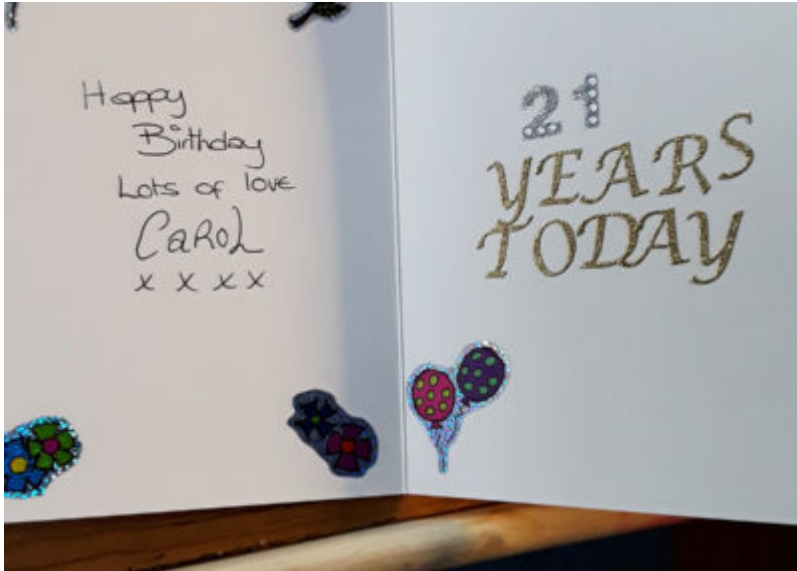 Happy
Birthday
Lots of love
CAROL
x x x x
21
YEARS
TODAY